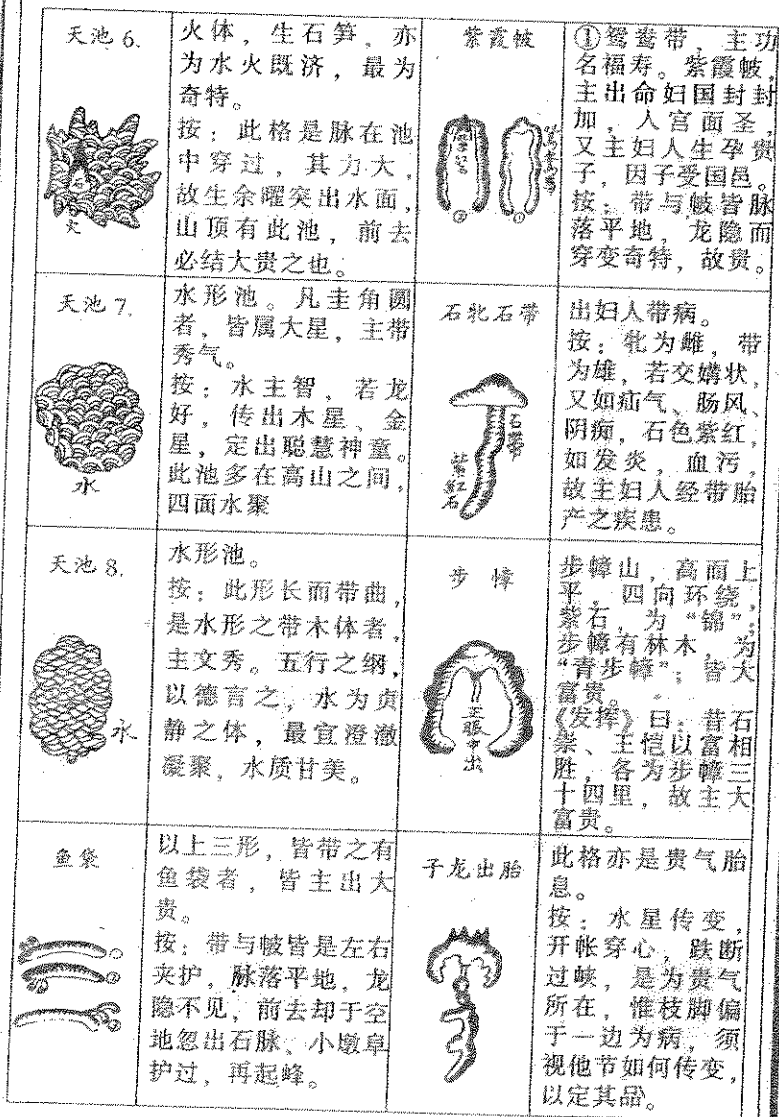 天池 6.
火
火体，生石笋，亦
为水火既济，最为
奇特。
按：此格是脉在池
中穿过，其力大，
故生余曜突出水面，
山顶有此池，前去
必结大贵之也。
紫霞帔
②
①
①鸳鸯带，主功
名福寿。紫霞帔，
主出命妇国封封
加，人宫面圣，
又主妇人生孕贵
子，因子受国邑。
按：带与帔皆脉
落平地，龙隐而
穿变奇特，故贵。
天池 7.
水
水形池。凡圭角圆
者，皆属大星，主带
秀气。
按：水主智，若龙
好，传出木星、金
星，定出聪慧神童。
此池多在高山之间，
四面水聚
石牝石带
石带
紫红石
出妇人带病。
按：牝为雌，带
为雄，若交媾状，
又如疝气、肠风、
阴痫，石色紫红，
如发炎，血污，
故主妇人经带胎
产之疾患。
天池 8.
水
水形池。
按：此形长而带曲，
是水形之带木体者，
主文秀。五行之纲，
以德言之，水为贞
静之体，最宜澄澈
凝聚，水质甘美。
步幛
正脉中出
步幛山，高而上
平，四向环绕，
紫石，为“锦”；
步幛有林木，为
“青步幛”；皆大
富贵。
《发挥》曰：昔石
崇、王恺以富相
胜，各为步幛三
十四里，故主大
富贵。
鱼袋
①
②
③
以上三形，皆带之有
鱼袋者，皆主出大
贵。
按：带与帔皆是左右
夹护，脉落平地，龙
隐不见，前去却于空
地忽出石脉、小墩阜
护过，再起峰。
子龙出胎
此格亦是贵气胎
息。
按：水星传变，
开帐穿心，跌断
过峡，是为贵气
所在，惟枝脚偏
于一边为病，须
视他节如何传变，
以定其品。